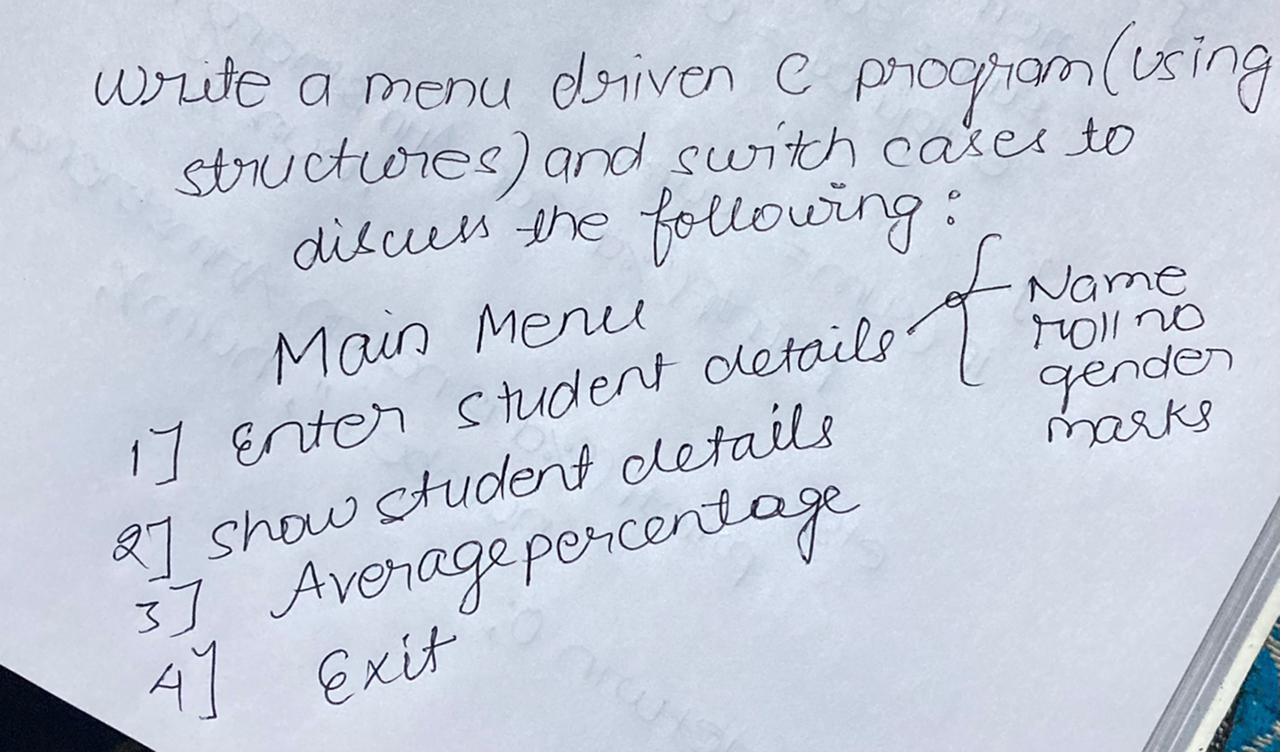 Write a menu driven C program (using
structures) and switch cases to
discuss the following:
Main Menu
1] Enter student details { Name
roll no
gender
marks
2] Show student details
3] Average percentage
4] Exit